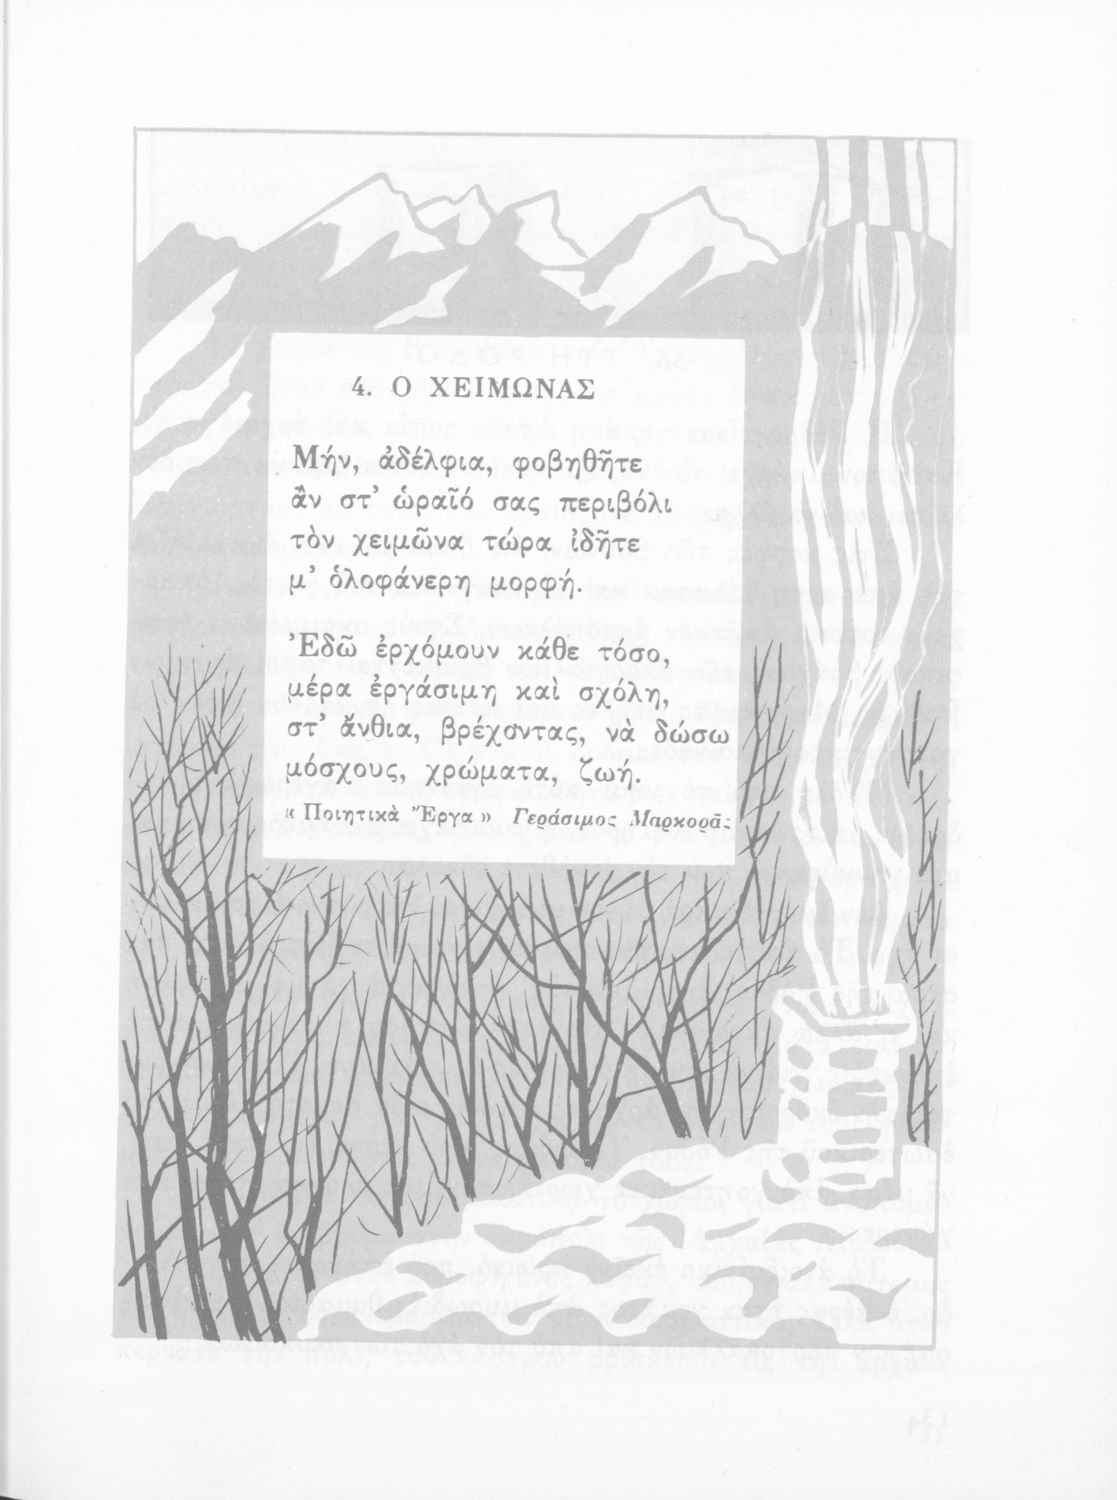 4. Ο ΧΕΙΜΩΝΑΣ
Μήν, ἀδέλφια, φοβηθῆτε
ἂν στ’ ὡραῖό σας περιβόλι
τὸν χειμῶνα τώρα ἰδῆτε
μ’ ὁλοφάνερη μορφή.
’Εδῶ ἐρχόμουν κάθε τόσο,
μέρα ἐργάσιμη καὶ σχόλη,
στ’ ἄνθια, βρέχοντας, νὰ δώσω
μόσχους, χρώματα, ζωή.
« Ποιητικὰ Ἔργα » Γεράσιμος Μαρκορᾶς